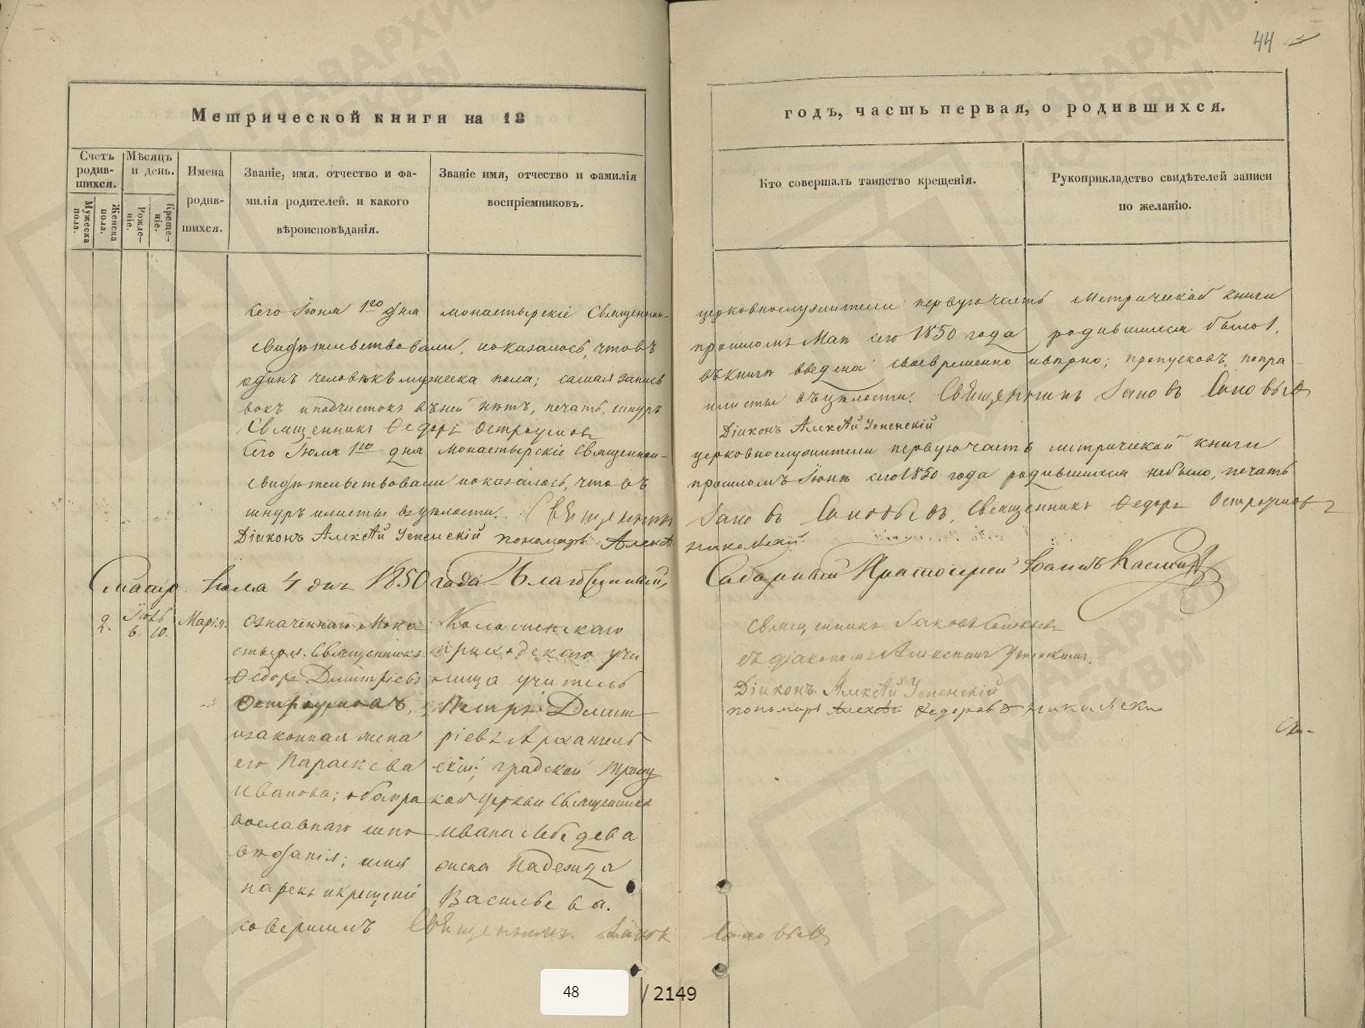 44
Метрической книги на 18
годъ, часть первая, о родившихся.
Счетъ родившихся.
Мужеска пола.
Женска пола.
Мѣсяцъ и день.
Рожденіе.
Крещеніе.
Имена родившихся.
Званіе, имя, отчество и фамилія родителей, и какого вѣроисповѣданія.
Званіе имя, отчество и фамилія воспріемниковъ.
Кто совершалъ таинство крещенія.
Рукоприкладство свидѣтелей записи по желанію.
Сего Іюня 1го дня монастырскіе Священно- церковнослужители первую часть Метрической книги
свидѣтельствовали, показалось, что въ прошломъ Маѣ сего 1850 года родившихся было 1,
одинъ человѣкъ мужеска пола; самая запись въ книгѣ введена своевременно и вѣрно; пропусковъ, попра-
вокъ и подчистокъ въ ней нѣтъ, печать, шнуръ и листы въ цѣлости. Священникъ Іаковъ Соловьевъ
Священникъ Ѳедоръ Остроумовъ Діаконъ Алексѣй Успенскій
Сего Іюля 1го дня монастырскіе Священно- церковнослужители первую часть метрической книги
свидѣтельствовали показалось, что въ прошломъ Іюнѣ сего 1850 года родившихся небыло, печать
шнуръ и листы въ цѣлости. Священникъ Іаковъ Соловьевъ, Священникъ Ѳедоръ Остроумовъ
Діаконъ Алексѣй Успенскій пономарь Алексѣ Никольскій
Іюля 4 дня 1850 года Благочинный, Соборный Протоіерей Іоаннъ
2.
Іюль
6. 10.
Марія.
Означеннаго Мона
стыря Священникъ
Ѳедоръ Дмитріевъ
Остроумовъ,
и законная жена
его Параскева
Иванова; оба пра
вославнаго испо
вѣданія; имя
нарекъ и крещеніе
совершилъ Священникъ Іаковъ Соловьевъ
Коломенскаго
приходскаго учи
лища учитель
Петръ Дмит
ріевъ Архангель
скій; градской Троиц
кой церкви Священника
Ивана Лебедева
жена Надежда
Васильева.
Священникъ Іаковъ Соловьевъ
съ діакономъ Алексѣемъ Успенскимъ.
Діаконъ Алексѣй Успенскій
пономарь Алексѣй Ѳедоровъ Никольскій
48 / 2149